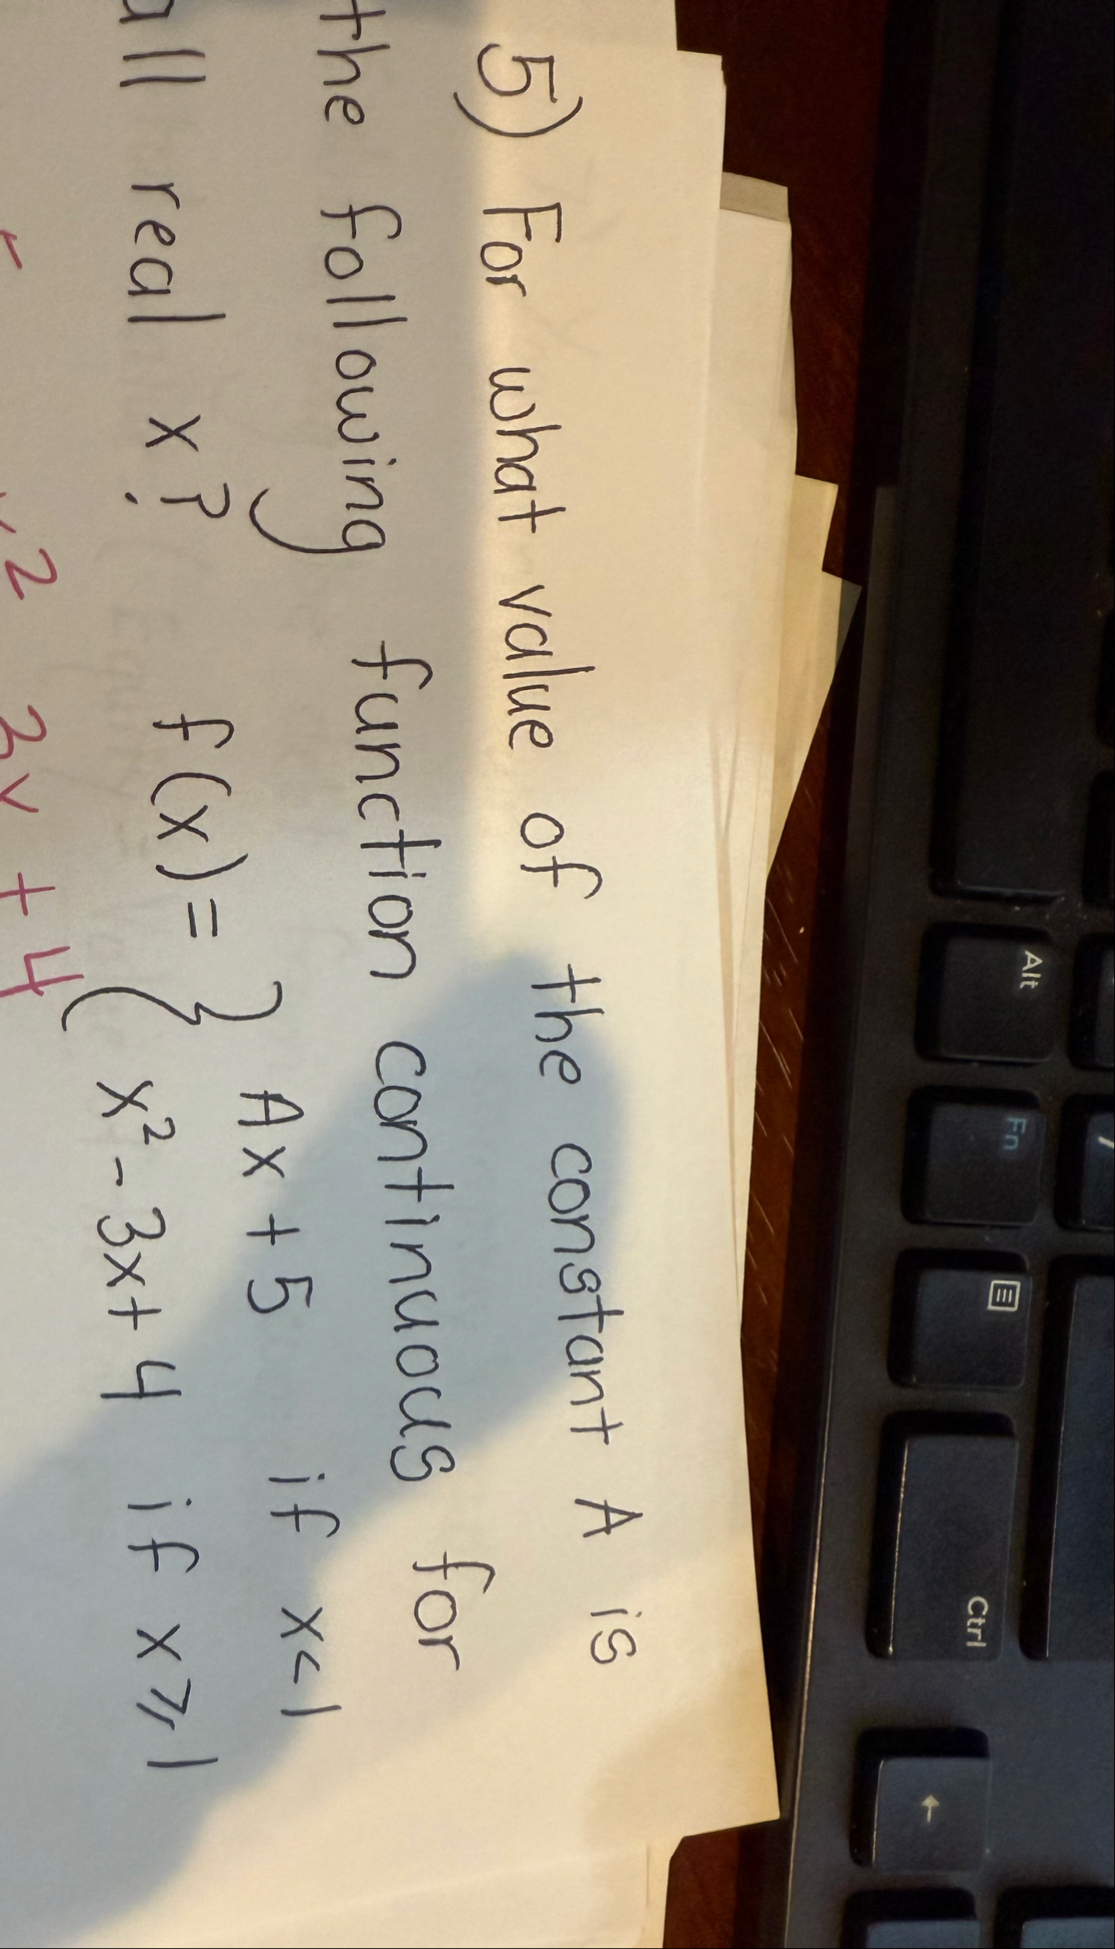 5) For what value of the constant A is
the following function continuous for
all real x? f(x) = { Ax + 5 if x < 1
x² - 3x + 4 if x ⩾ 1
3x + 4
Alt
Fn
Ctrl
←